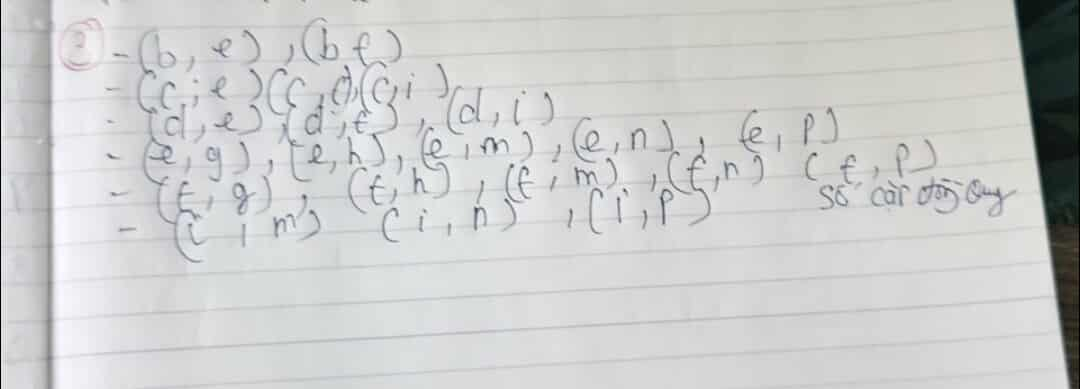 ② - (b, e), (b f)
- (c, e) (c, d), (c, i)
- (d, e), (d, f), (d, i)
- (e, g), (e, h), (e, m), (e, n), (e, p)
- (f, g), (f, h), (f, m), (f, n) (f, p)
- (i, m) (i, n), (i, p) số các đồng quy